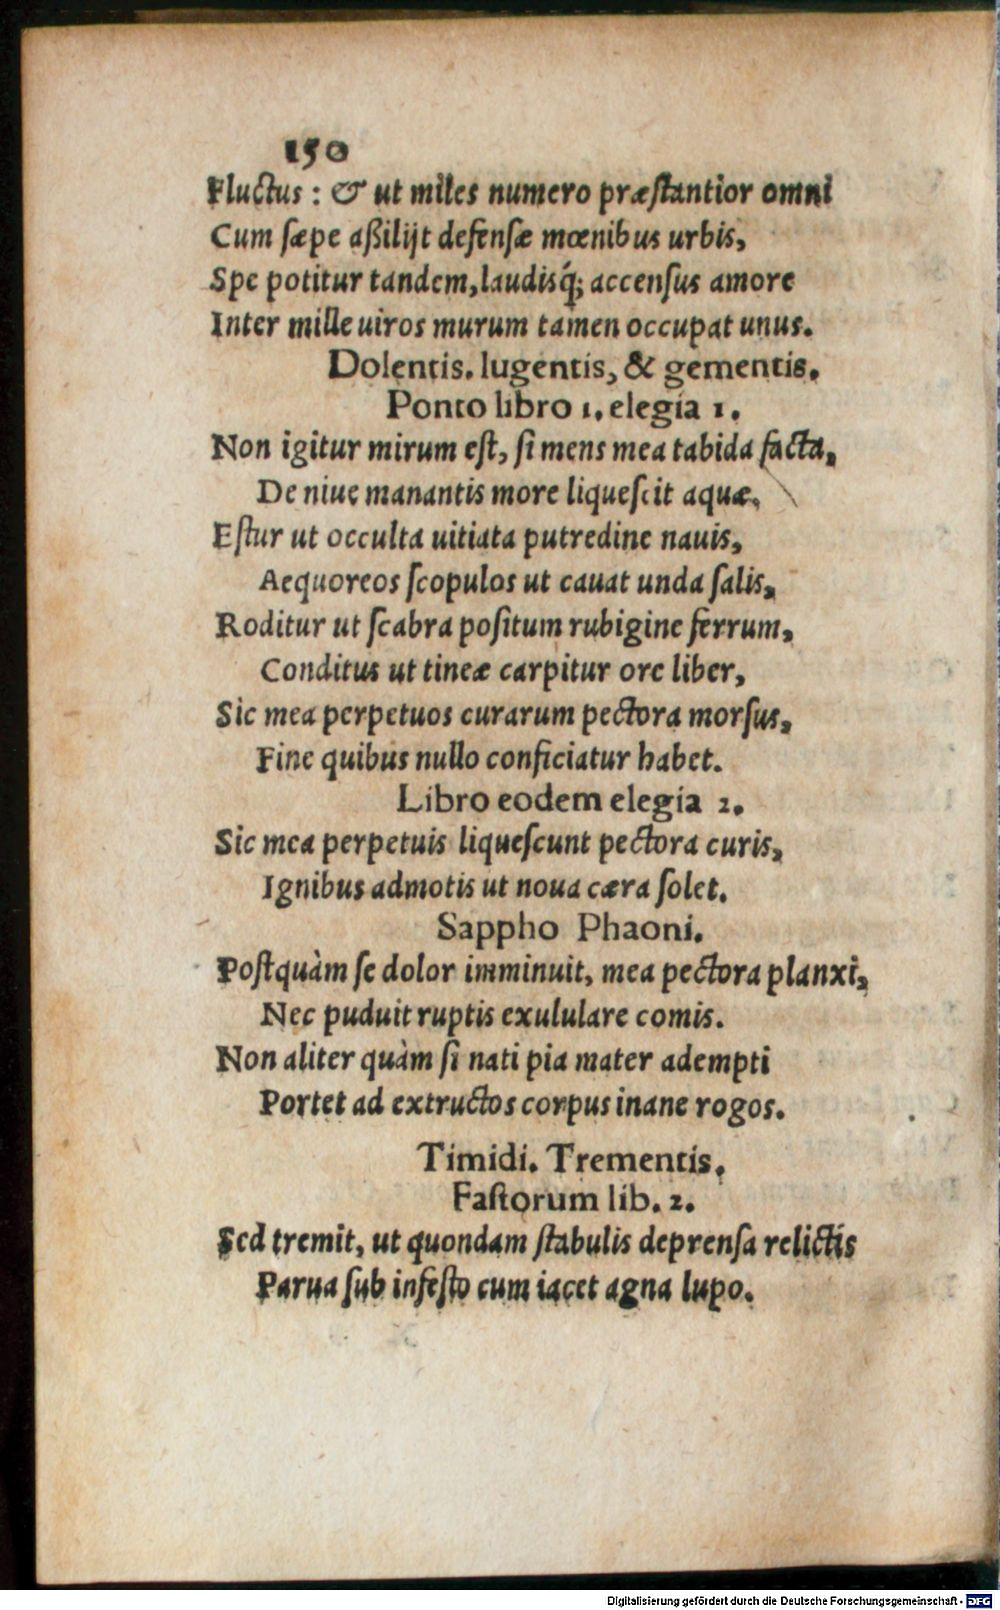 150
Fluctus : & ut miles numero præſtantior omni
Cum ſæpe aßilijt defenſæ mœnibus urbis,
Spe potitur tandem, laudisq́; accenſus amore
Inter mille uiros murum tamen occupat unus.
Dolentis. lugentis, & gementis.
Ponto libro 1. elegia 1.
Non igitur mirum eſt, ſi mens mea tabida facta,
De niue manantis more liqueſcit aquæ,
Eſtur ut occulta uitiata putredine nauis,
Aequoreos ſcopulos ut cauat unda ſalis,
Roditur ut ſcabra poſitum rubigine ferrum,
Conditus ut tineæ carpitur ore liber,
Sic mea perpetuos curarum pectora morſus,
Fine quibus nullo conficiatur habet.
Libro eodem elegia 2.
Sic mea perpetuis liqueſcunt pectora curis,
Ignibus admotis ut noua cæra ſolet.
Sappho Phaoni.
Poſtquàm ſe dolor imminuit, mea pectora planxi,
Nec puduit ruptis exululare comis.
Non aliter quàm ſi nati pia mater adempti
Portet ad extructos corpus inane rogos.
Timidi. Trementis.
Faſtorum lib. 2.
Sed tremit, ut quondam ſtabulis deprenſa relictis
Parua ſub infeſto cum iacet agna lupo.
Digitalisierung gefördert durch die Deutsche Forschungsgemeinschaft - DFG